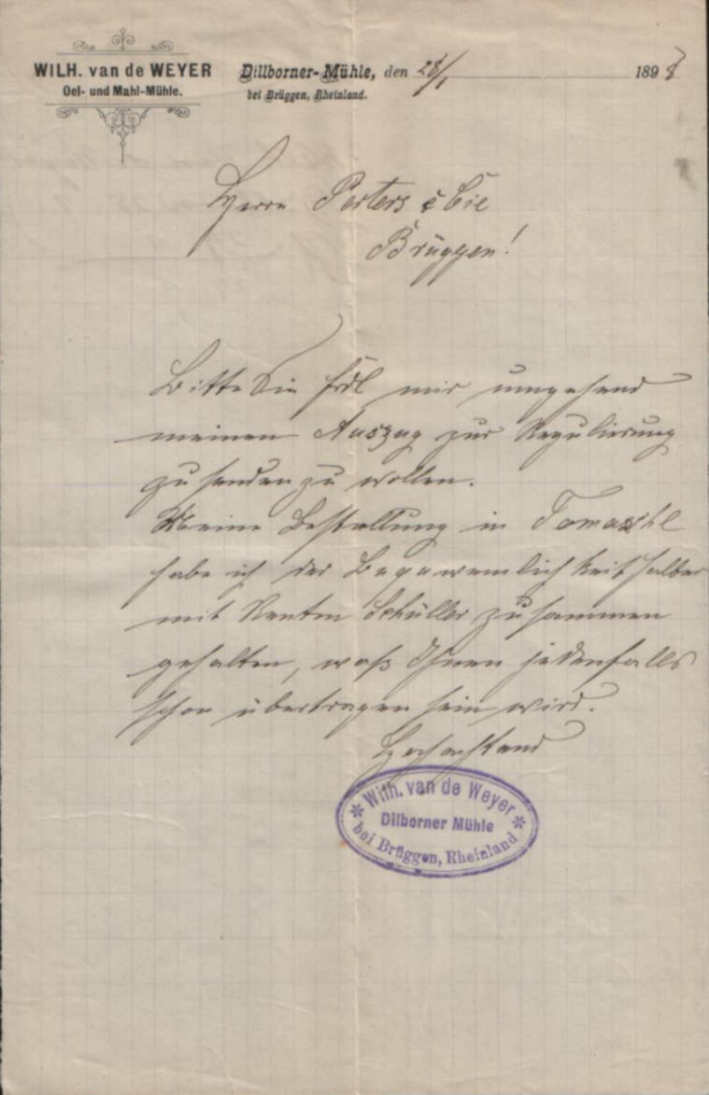 WILH. van de WEYER
Oel- und Mahl-Mühle.
Dillborner-Mühle, den 28/1 1898
bei Brüggen, Rheinland.
Herrn & Cie
Brüggen!
Bitte Sie frdl mir umgehend
meinen Auszug zur Regulierung
zu senden zu wollen.
Meine Bestellung in
habe ich der halber
mit Schüller zusammen
gehalten, was Ihnen jedenfalls
schon übertragen sein wird.
Hochachtend
Wilh. van de Weyer
Dilborner Mühle
bei Brüggen, Rheinland